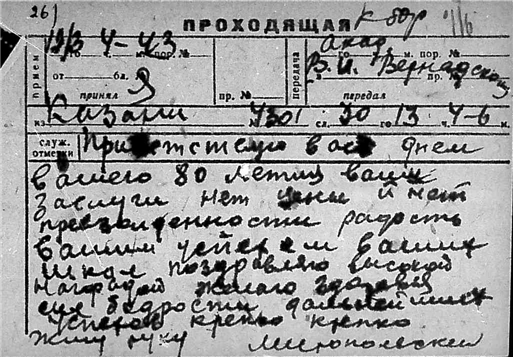 26) ПРОХОДЯЩАЯ к бор
12/3 4-43 Акад
го ч. м. пор. № го ч. м. пор. №
прием передача В. И. Вернадскому
от бл. пр.
принял пр. № передал
из Казани № 4301 сл. 30 го 13 ч. 4-6 м.
служ. отметки Приветствую вас днем
вашего 80 летия ваши
заслуги нет цены и нет
радость
вашим успехам ваших
школ поздравляю высокой
наградой желаю здоровья
сил бодрости дальнейших
успехов крепко крепко
жму руку